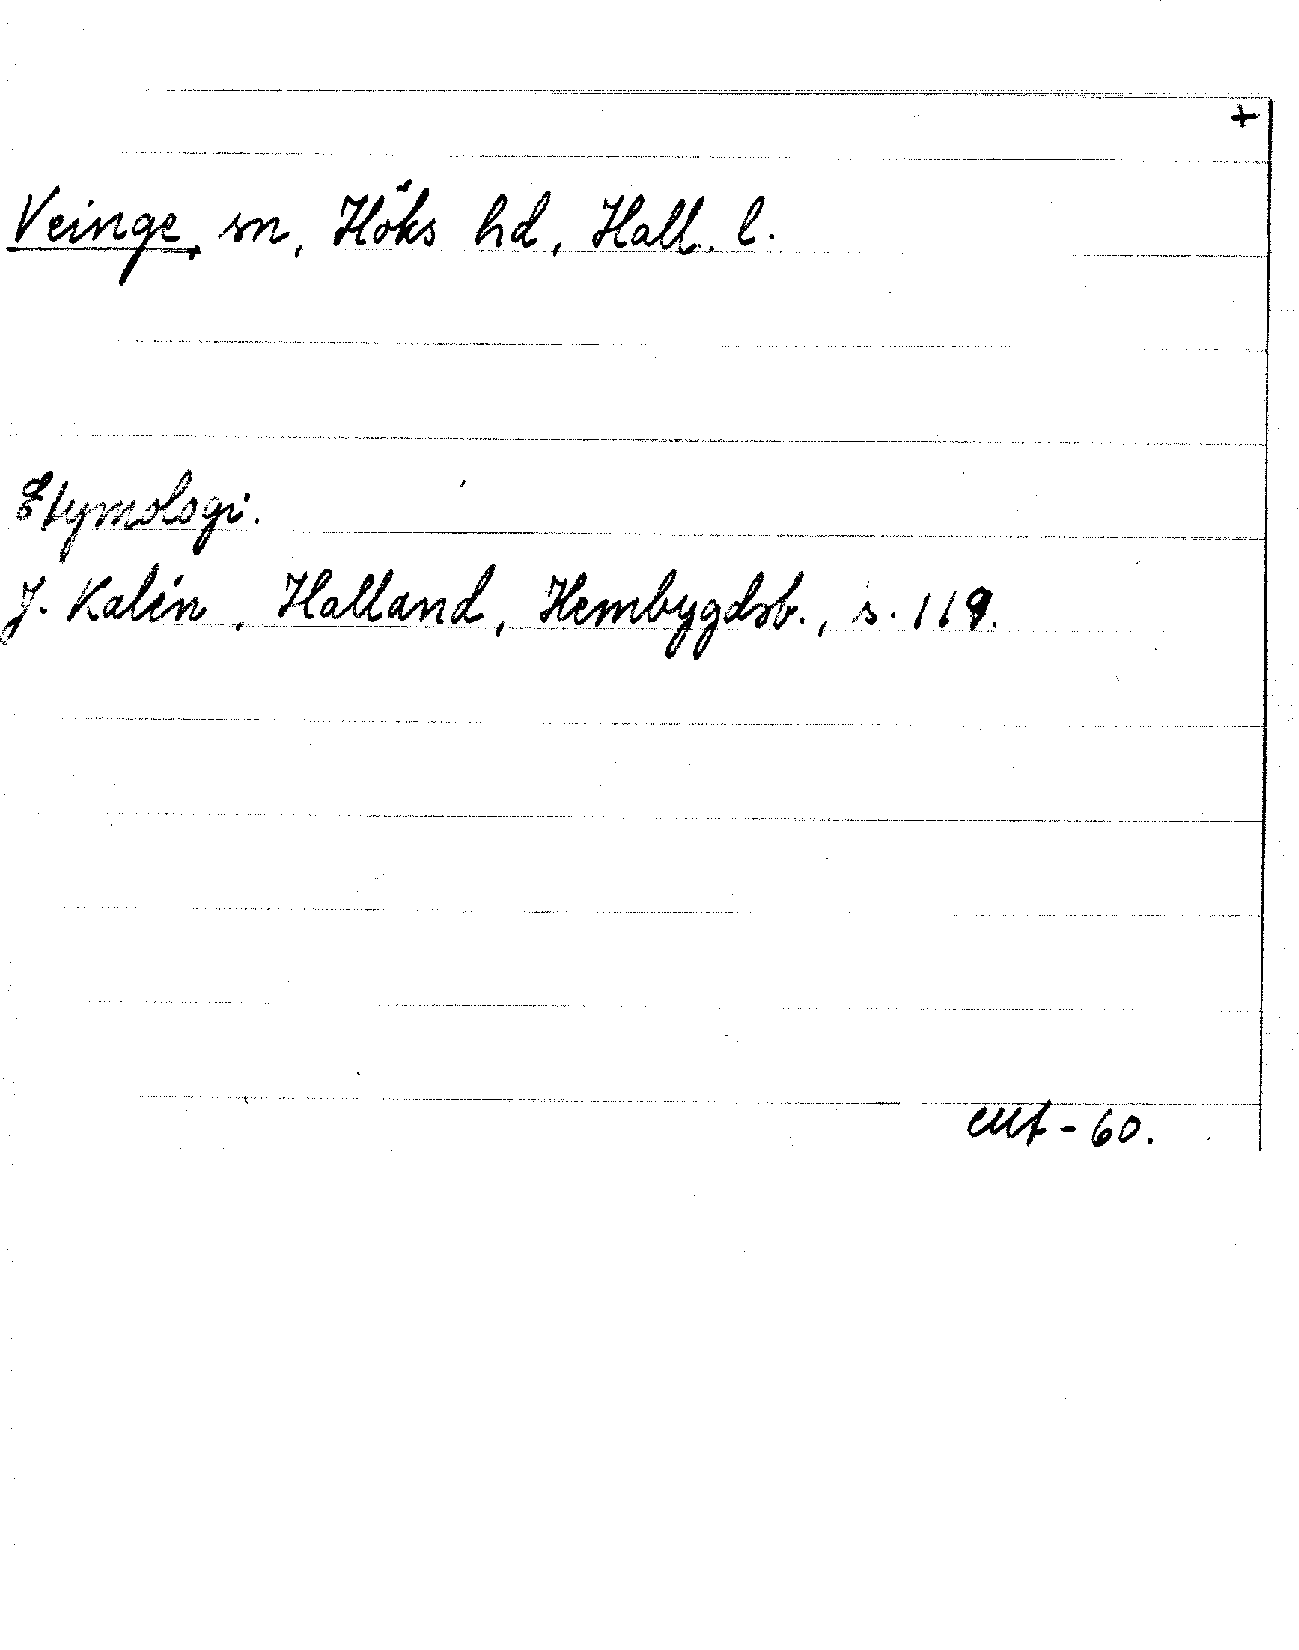 +
Veinge, sn, Höks hd, Hall. l.
Etymologi.
J. Kalén, Halland, Hembygdsb., s. 119.
CMt - 60.